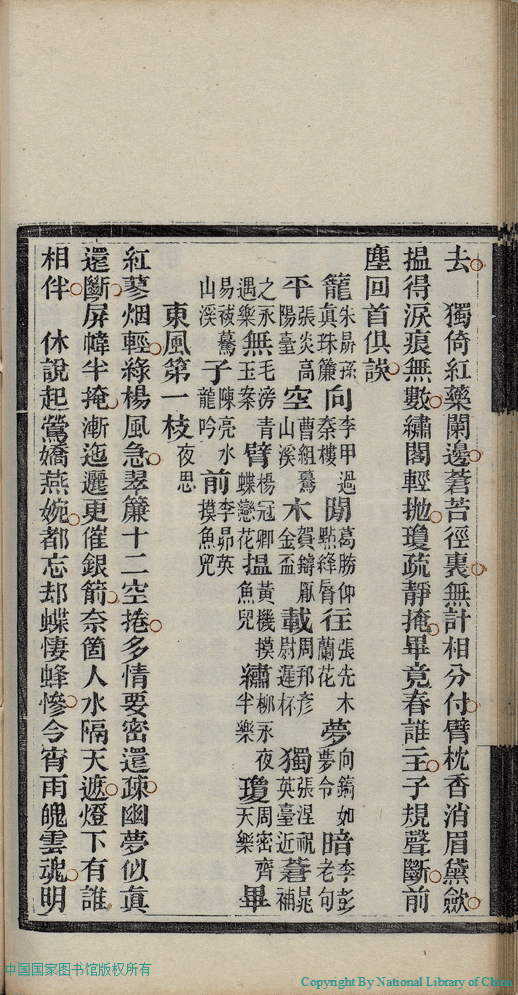 去　獨倚紅藥闌邊蒼苔徑裏無計相分付臂枕香消眉黛斂
搵得淚痕無數繡閣輕拋瓊疏靜掩畢竟春誰主子規聲斷前
塵回首俱談
籠朱昴孫真珠簾向李甲過秦樓聞葛勝仲點絳唇往張先木蘭花夢向鎬如夢令暗李彭老句
平張炎高陽臺空曹組驀山溪水賀鑄厭金盃載周邦彥尉遲杯獨張涅祝英臺近蒼晁補
之永遇樂無毛滂青玉案臂楊冠卿蝶戀花搵黃機摸魚兒繡柳永夜半樂瓊周密齊天樂畢
易祓驀山溪子陳亮水龍吟前李昴英摸魚兒
東風第一枝夜思
紅蓼烟輕綠楊風急翠簾十二空捲多情要密還疎幽夢似真
還斷屏幃半掩漸迤邐更催銀箭奈箇人水隔天遮燈下有誰
相伴　休說起鶯嬌燕婉都忘却蝶悽蜂慘今宵雨魄雲魂明
中国国家图书馆版权所有
Copyright By National Library of China